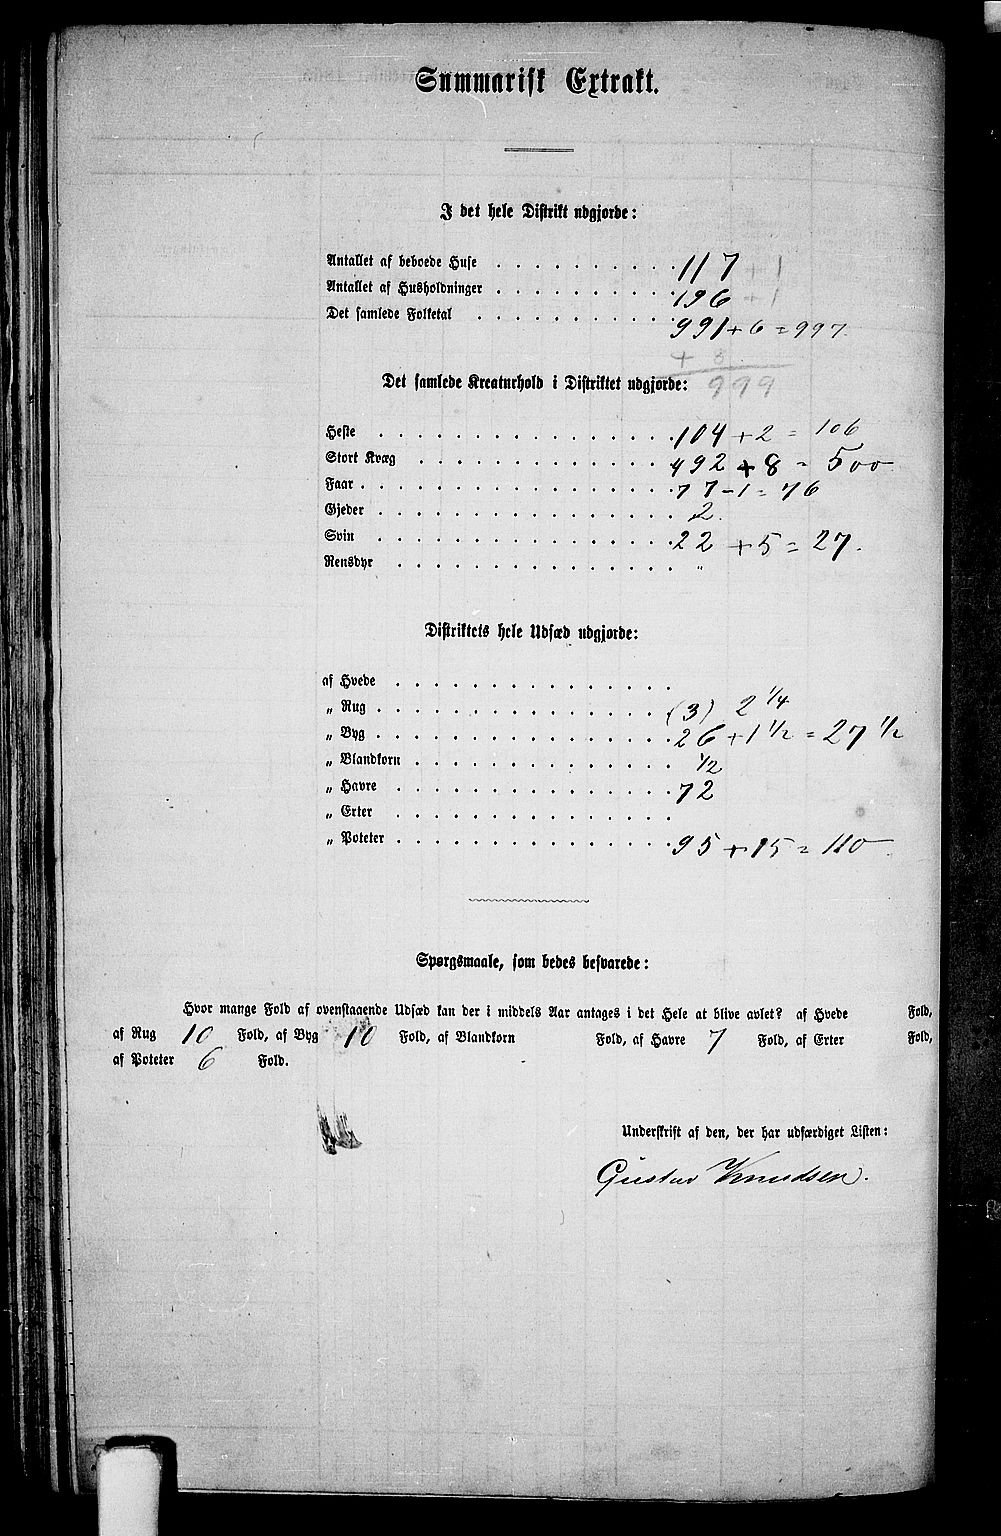 Summarisk Extrakt.
I det hele Distrikt udgjorde:
Antallet af beboede Huse . . . . . . . . 117 + 1
Antallet af Husholdninger . . . . . . . . 196 + 1
Det samlede Folketal . . . . . . . . . 991 + 6 = 997.
+ 3
Det samlede Kreaturhold i Distriktet udgjorde: 999
Heste . . . . . . . . . . . . 104 + 2 = 106
Stort Kvæg . . . . . . . . . . 492 + 8 = 500
Faar . . . . . . . . . . . . . 77 - 1 = 76
Gjeder . . . . . . . . . . . . 2.
Svin . . . . . . . . . . . . 22 + 5 = 27.
Rensdyr . . . . . . . . . . . „
Distriktets hele Udsæd udgjorde:
af Hvede . . . . . . . . . . .
„ Rug . . . . . . . . . . . . (3) 2 1/4
„ Byg . . . . . . . . . . . . 26 + 1 1/2 = 27 1/2
„ Blandkorn . . . . . . . . . . 1/2
„ Havre . . . . . . . . . . . 72
„ Erter . . . . . . . . . . .
„ Poteter . . . . . . . . . . . 95 + 15 = 110
Spørgsmaale, som bedes besvarede:
Hvor mange Fold af ovenstaaende Udsæd kan der i middels Aar antages i det Hele at blive avlet? af Hvede Fold,
af Rug 10 Fold, af Byg 10 Fold, af Blandkorn Fold, af Havre 7 Fold, af Erter Fold,
af Poteter 6 Fold.
Underskrift af den, der har udfærdiget Listen:
Gustav Knudsen.